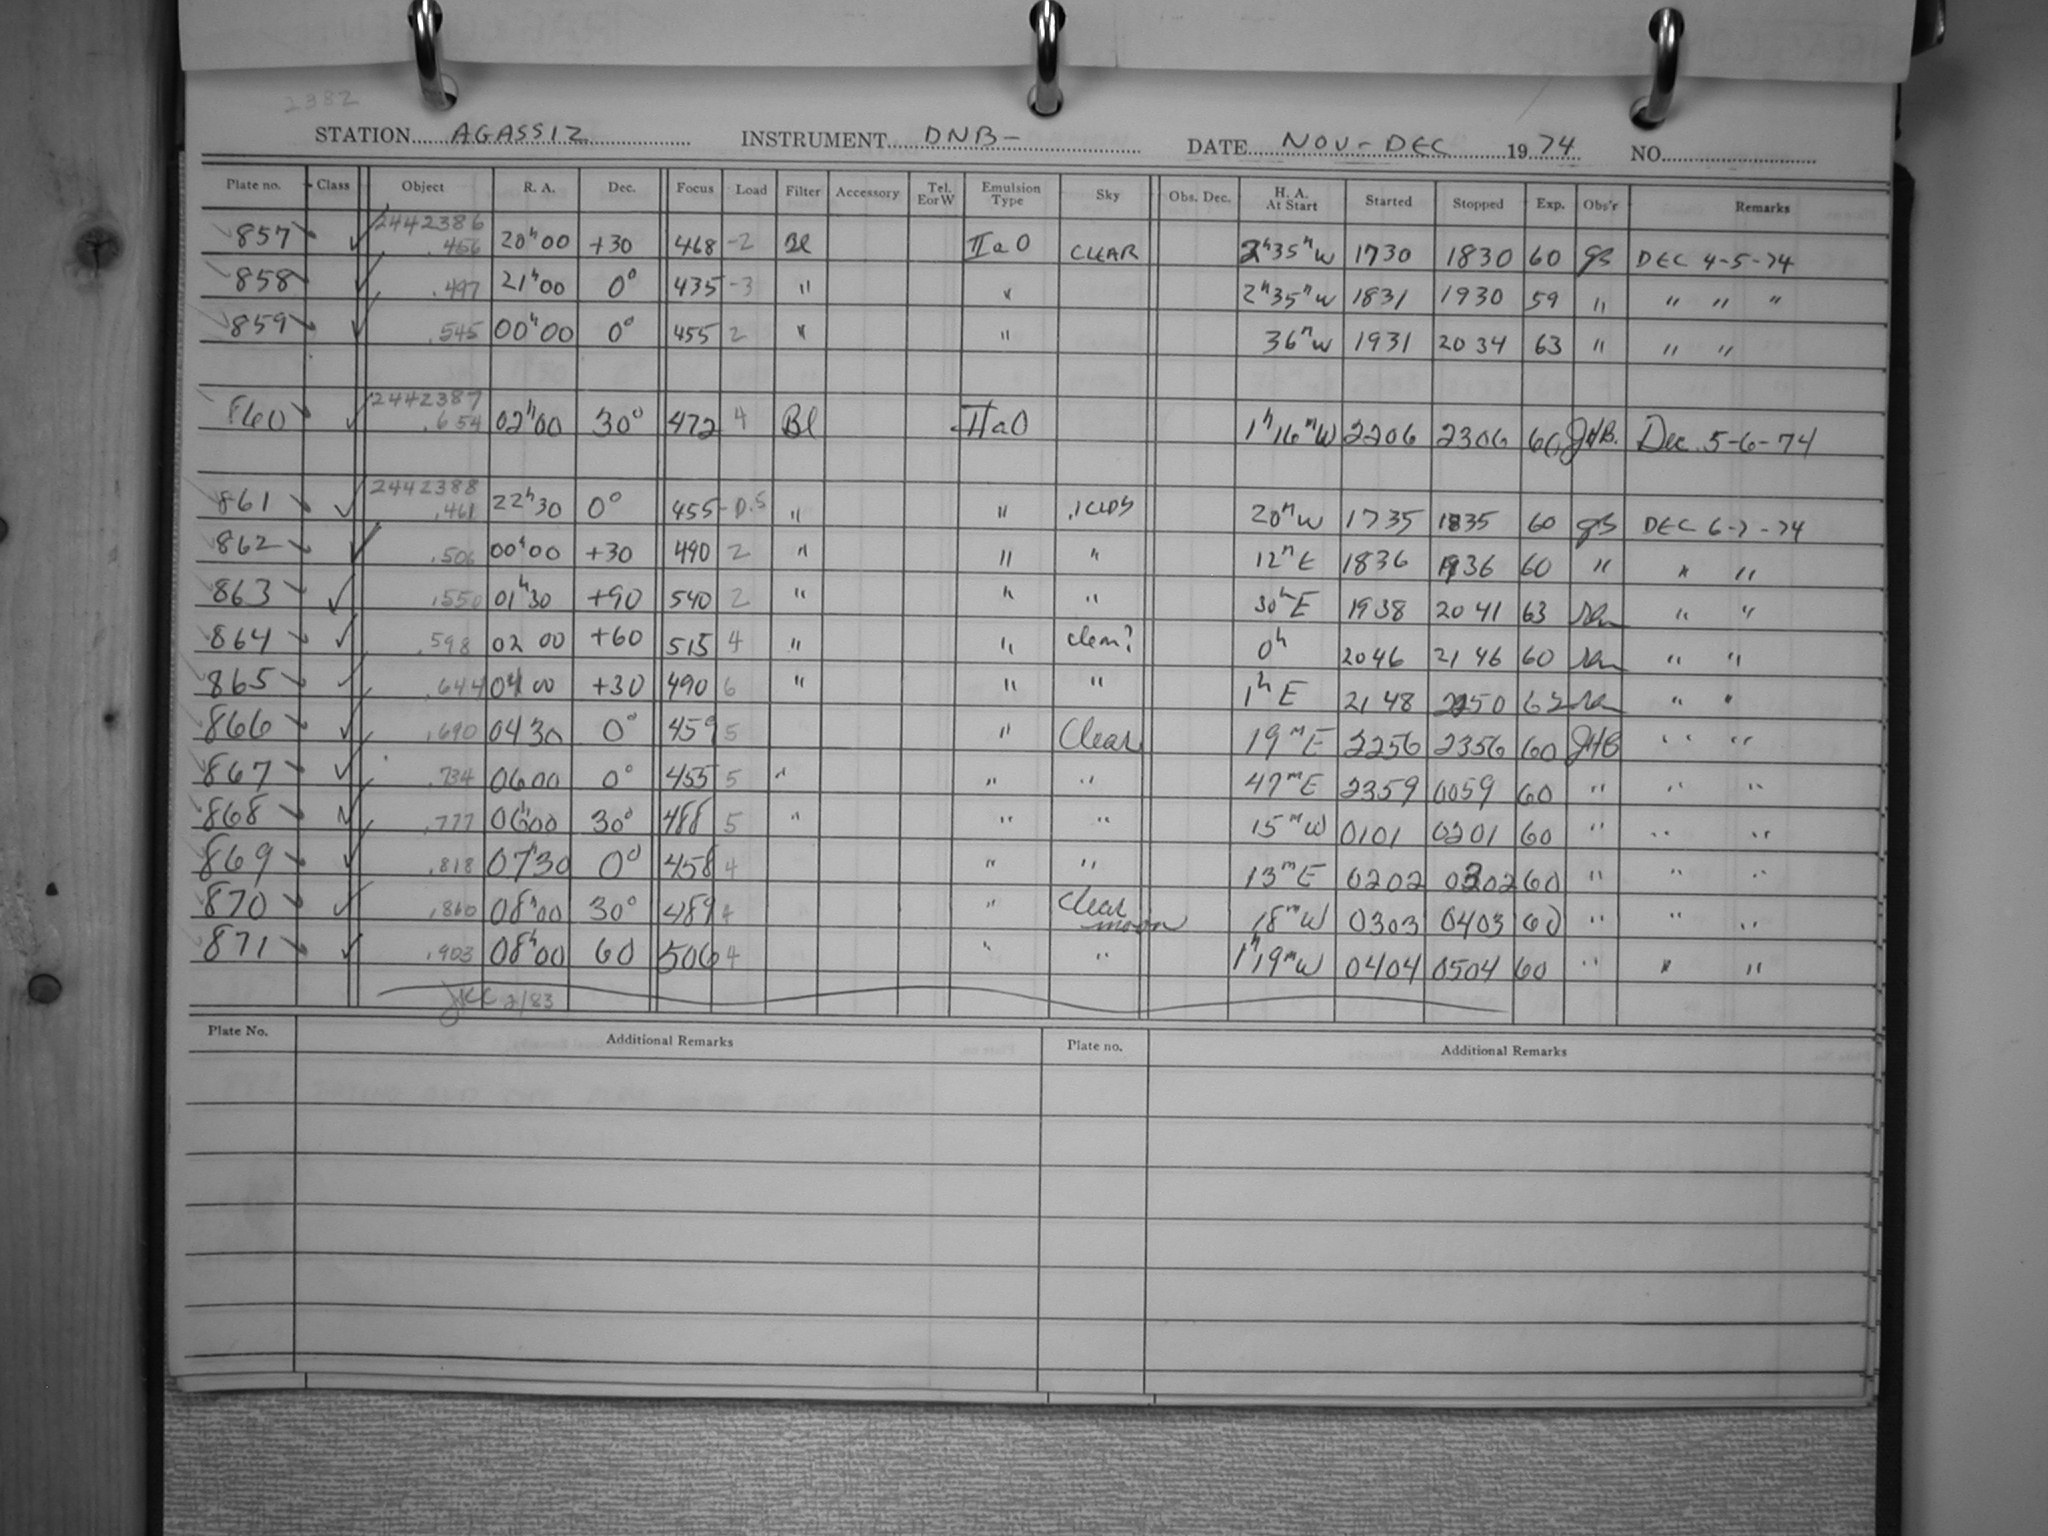 2382
STATION AGASSIZ INSTRUMENT DNB- DATE NOV - DEC 1974 NO.
Plate no. Class Object R. A. Dec. Focus Load Filter Accessory Tel. E or W Emulsion Type Sky Obs. Dec. H. A. At Start Started Stopped Exp. Obs'r Remarks
857 ✓ 2442386 .456 20h00 +30 468 -2 Bl IIaO CLEAR 2h35m W 1730 1830 60 gs DEC 4-5-74
858 ✓ .497 21h00 0° 435 -3 " " 2h35m W 1831 1930 59 " " " "
859 ✓ .545 00h00 0° 455 2 " " 36m W 1931 2034 63 " " "
860 ✓ 2442387 .654 02h00 30° 472 4 Bl IIaO 1h16m W 2206 2306 60 JHB. Dec. 5-6-74
861 ✓ 2442388 .461 22h30 0° 455 -0.5 " " .1 CLDS 20m W 1735 1835 60 gs DEC 6-7-74
862 ✓ .506 00h00 +30 490 2 " " " 12m E 1836 1936 60 " " "
863 ✓ .550 01h30 +90 540 2 " " " 30m E 1938 2041 63 " "
864 ✓ .598 02 00 +60 515 4 " " clear? 0h 2046 2146 60 " "
865 ✓ .644 04 00 +30 490 6 " " " 1h E 2148 2250 62 " "
866 ✓ .690 04 30 0° 459 5 " Clear 19m E 2256 2356 60 JHB " "
867 ✓ .734 06 00 0° 455 5 " " " 47m E 2359 0059 60 " " "
868 ✓ .777 06h00 30° 488 5 " " " 15m W 0101 0201 60 " " "
869 ✓ .818 07h30 0° 458 4 " " 13m E 0202 0302 60 " " "
870 ✓ .860 08h00 30° 489 4 " Clear moon 18m W 0303 0403 60 " " "
871 ✓ .903 08h00 60 506 4 " " 1h19m W 0404 0504 60 " " "
JKC 2/83
Plate No. Additional Remarks Plate no. Additional Remarks